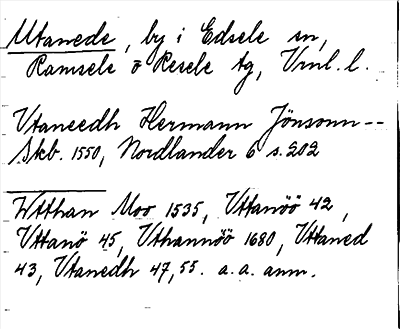 Utanede, by i Edsele sn,
Ramsele o Resele tg, Vrnl. l.
Utaneedh Hermann Jönsonn--
Skb. 1550, Nordlander 6 s. 202
Wtthan Moo 1535, Vttanöö 42,
Vttanö 45, Vthannöö 1680, Vttaned
43, Vtanedh 47, 55. a. a. anm.